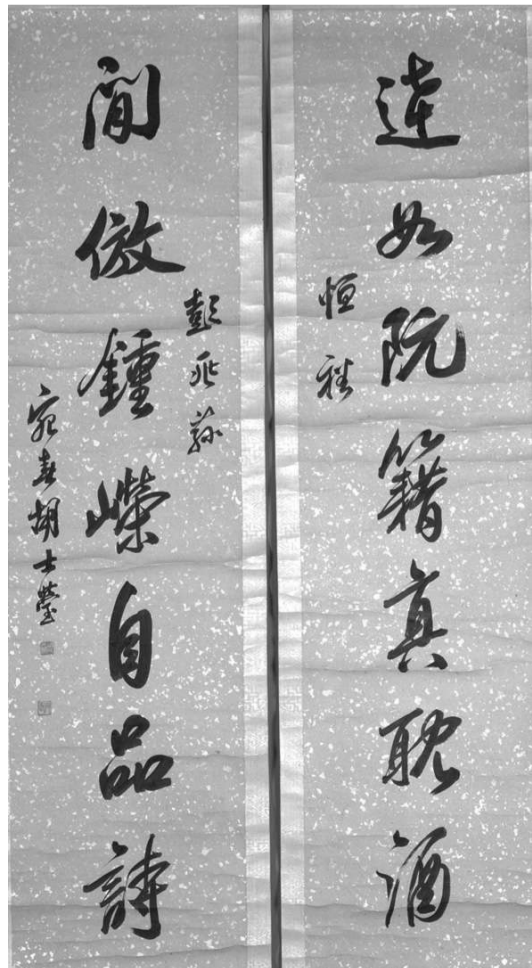 達如阮籍真耽酒
恒
閒倣鍾嶸自品詩
彭兆蓀
宛春胡士瑩